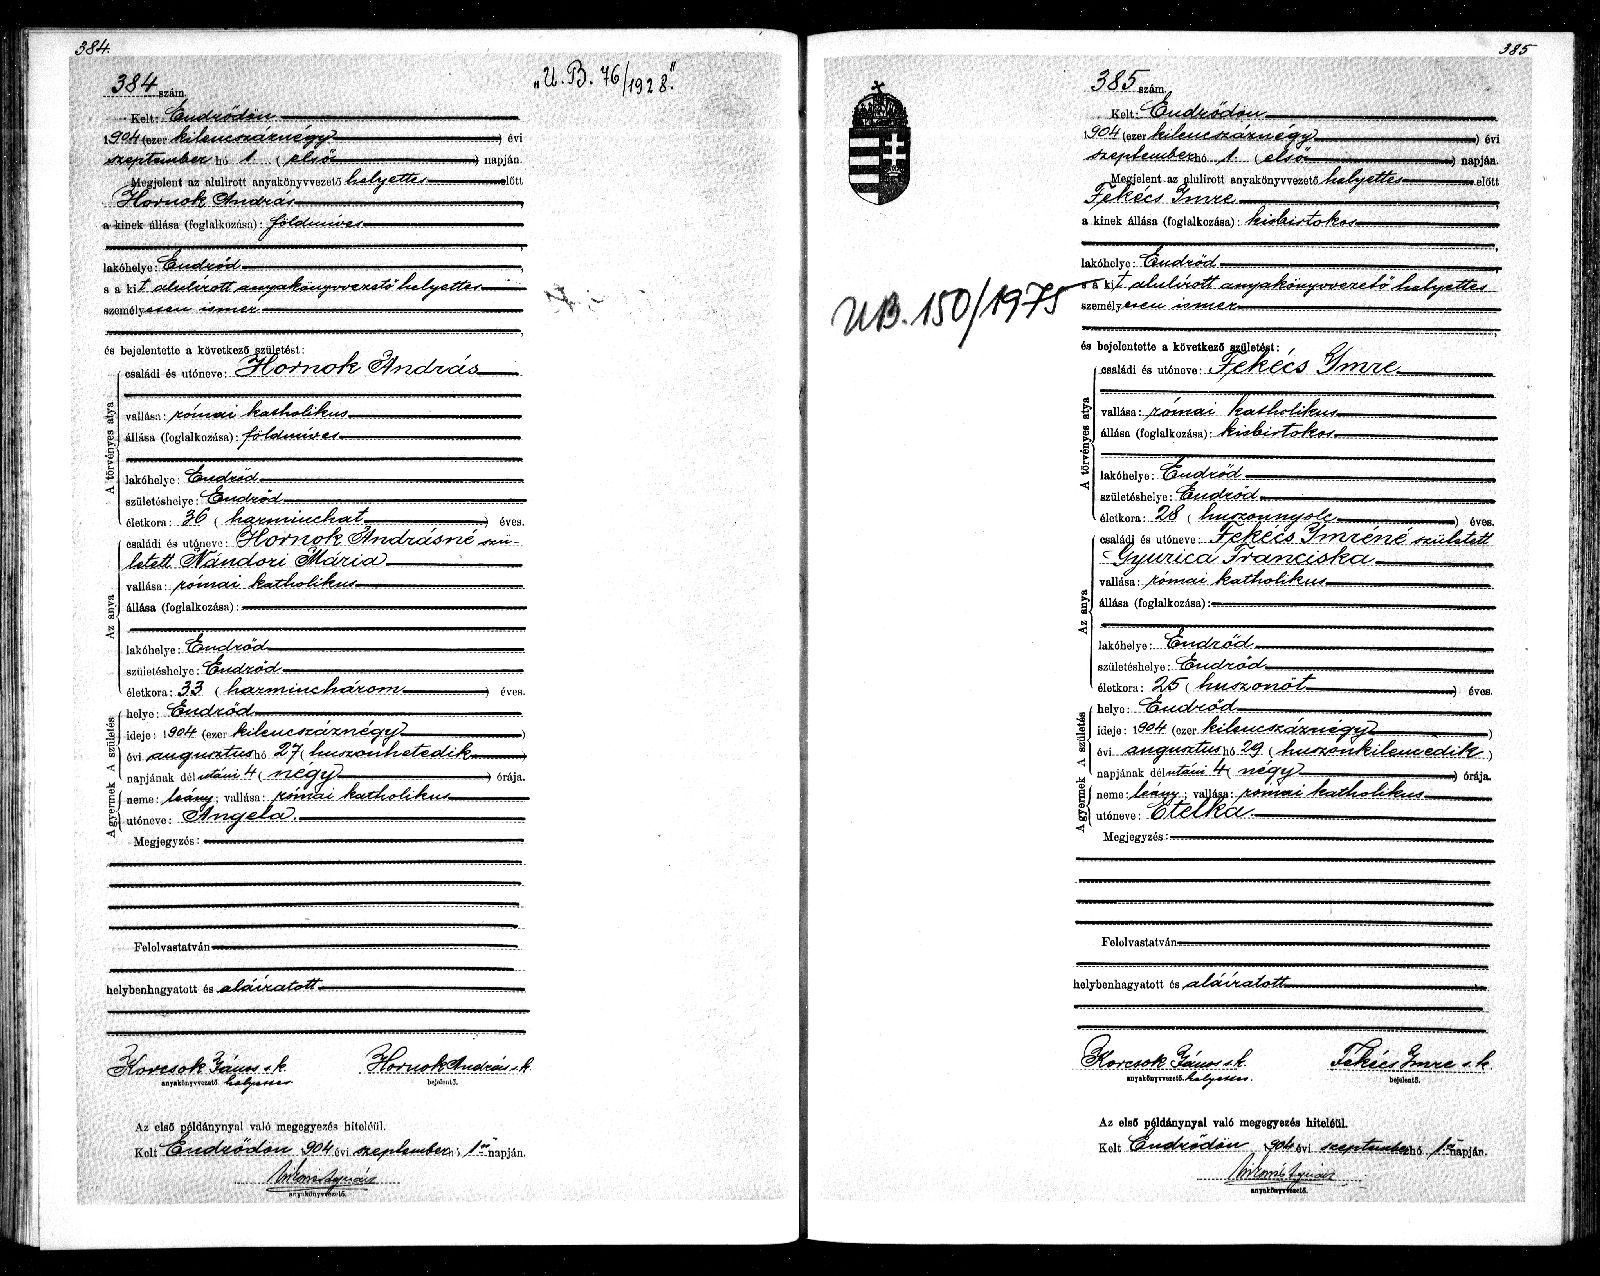 384.
384 szám.
„U. B. 76/1928."
Kelt: Endrődön
1904 (ezer kilencszáznégy) évi
szeptember hó 1. (első) napján.
Megjelent az alulirott anyakönyvvezető helyettes előtt
Hornok András,
a kinek állása (foglalkozása): földmüves
lakóhelye: Endrőd,
s a kit alulírott anyakönyvvezető helyettes
személyesen ismer
és bejelentette a következő születést:
A törvényes atya
családi és utóneve: Hornok András
vallása: római katholikus
állása (foglalkozása): földmüves
lakóhelye: Endrőd
születéshelye: Endrőd
életkora: 36 (harminchat) éves.
Az anya
családi és utóneve: Hornok Andrásné szü-
letett Nándori Mária
vallása: római katholikus
állása (foglalkozása):
lakóhelye: Endrőd
születéshelye: Endrőd
életkora: 33 (harminchárom) éves.
A gyermek A születés
helye: Endrőd
ideje: 1904 (ezer kilencszáznégy)
évi augusztus hó 27 (huszonhetedik)
napjának délutáni 4 (négy) órája.
neme: leány; vallása: római katholikus
utóneve: Angela.
Megjegyzés:
Felolvastatván
helybenhagyatott és aláíratott
Korcsok János s.k. Hornok András s.k.
anyakönyvvezető helyettes bejelentő.
Az első példánynyal való megegyezés hiteléül.
Kelt Endrődön, 904 évi szeptember hó 1-ső napján.
anyakönyvvezető.
385
385 szám.
UB. 150/1975
Kelt: Endrődön
1904 (ezer kilencszáznégy) évi
szeptember hó 1. (első) napján.
Megjelent az alulirott anyakönyvvezető helyettes előtt
Fekécs Imre,
a kinek állása (foglalkozása): kisbirtokos
lakóhelye: Endrőd
s a kit alulírott anyakönyvvezető helyettes
személyesen ismer
és bejelentette a következő születést:
A törvényes atya
családi és utóneve: Fekécs Imre
vallása: római katholikus
állása (foglalkozása): kisbirtokos
lakóhelye: Endrőd
születéshelye: Endrőd
életkora: 28 (huszonnyolc) éves.
Az anya
családi és utóneve: Fekécs Imréné született
Gyurica Franciska
vallása: római katholikus
állása (foglalkozása):
lakóhelye: Endrőd
születéshelye: Endrőd
életkora: 25 (huszonöt) éves.
A gyermek A születés
helye: Endrőd
ideje: 1904 (ezer kilencszáznégy)
évi augusztus hó 29 (huszonkilencedik)
napjának délutáni 4 (négy) órája.
neme: leány; vallása: római katholikus
utóneve: Etelka.
Megjegyzés:
Felolvastatván
helybenhagyatott és aláíratott
Korcsok János s.k. Fekécs Imre s.k.
anyakönyvvezető helyettes. bejelentő.
Az első példánynyal való megegyezés hiteléül.
Kelt Endrődön, 904 évi szeptember hó 1-ső napján.
anyakönyvvezető.